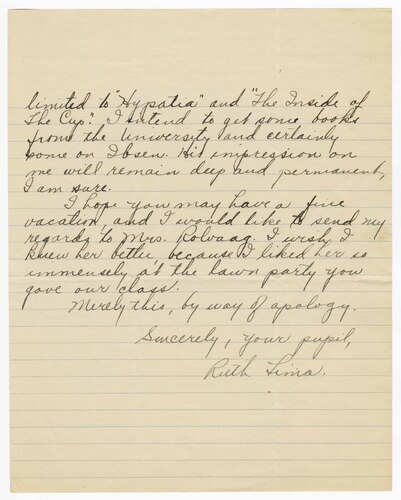 limited to "Hypatia" and "The Inside of
The Cup." I intend to get some books
from the University and certainly
some on Ibsen. His impression on
me will remain deep and permanent,
I am sure.
I hope you may have a fine
vacation, and I would like to send my
regards to Mrs. Rolvaag. I wish I
knew her better, because I liked her so
immensely at the lawn party you
gave our class.
Merely this, by way of apology.
Sincerely, your pupil,
Ruth Lima.